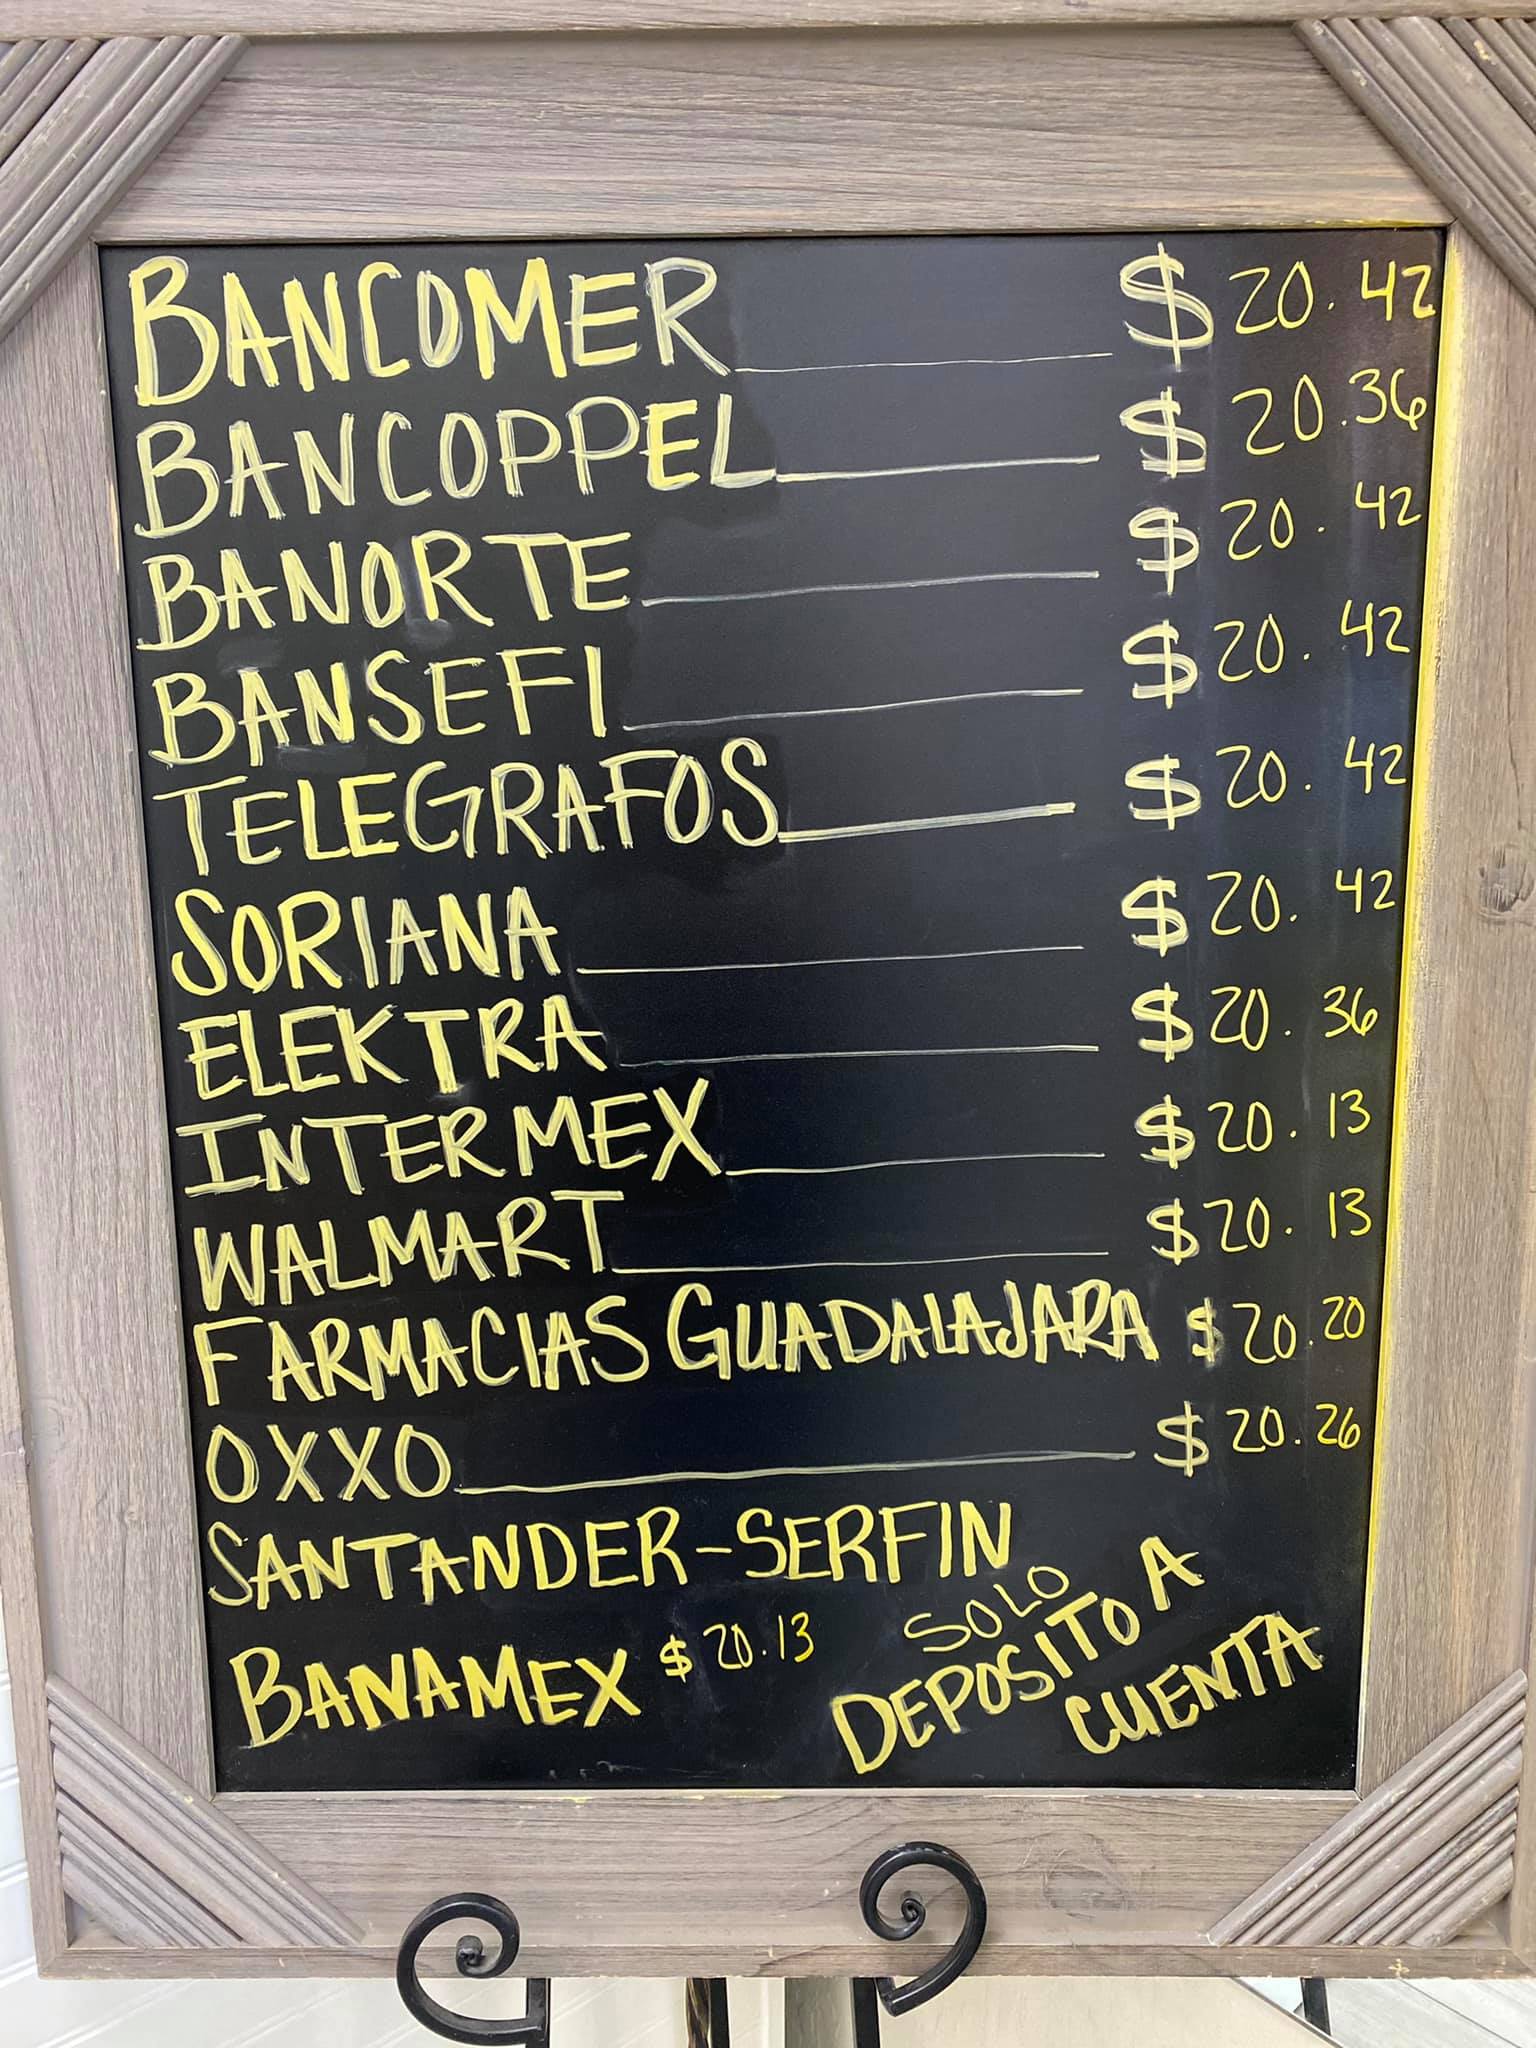 BANCOMER $ 20.42
BANCOPPEL $ 20.36
BANORTE $ 20.42
BANSEFI $ 20.42
TELEGRAFOS $ 20.42
SORIANA $ 20.42
ELEKTRA $ 20.36
INTERMEX $ 20.13
WALMART $ 20.13
FARMACIAS GUADALAJARA $ 20.20
OXXO $ 20.26
SANTANDER-SERFIN
BANAMEX $ 20.13
SOLO
DEPOSITO A
CUENTA